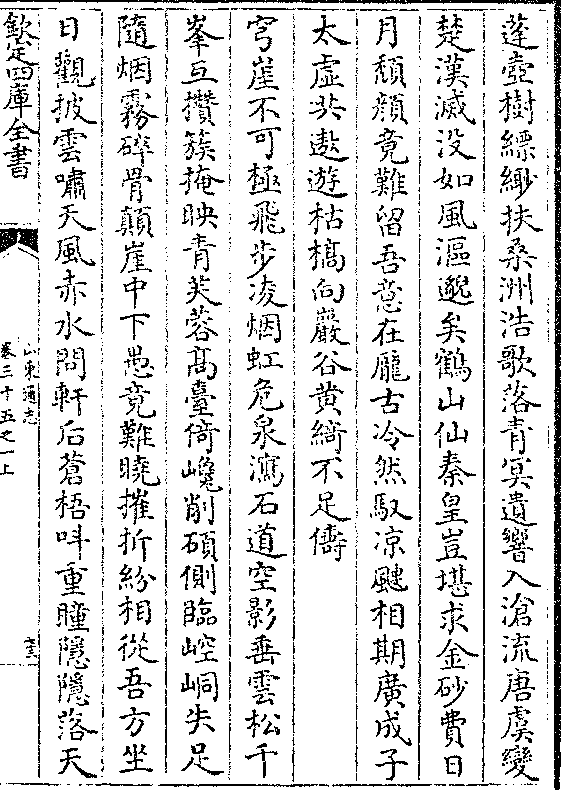 蓬壺樹縹緲扶桑洲浩歌落青冥遺響入滄流唐虞變
楚漢滅没如風漚邈矣鶴山仙秦皇豈堪求金砂費日
月頽顔竟難留吾意在龎古冷然馭凉飈相期廣成子
太虚共遨遊枯槁向巖谷黄綺不足儔
穹崖不可極飛步凌烟虹危泉瀉石道空影垂雲松千
峯互攅簇掩映青芙蓉髙臺倚巉削磧側臨崆峒失足
隨烟霧碎骨顛崖中下愚竟難曉摧折紛相從吾方坐
日觀披雲嘯天風赤水問軒后蒼梧呌重瞳隱隱落天
欽定四庫全書
山東通志
卷三十五之一上